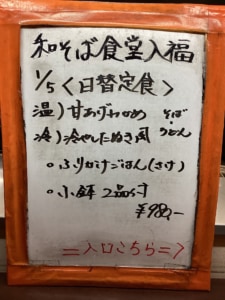 和そば食堂入福
1/5<日替定食>
温)甘あげわかめ そば
冷)冷やしたぬき風 うどん
○ふりかけごはん(さけ)
○小鉢 2品付
¥980,-
=入口こちら=>